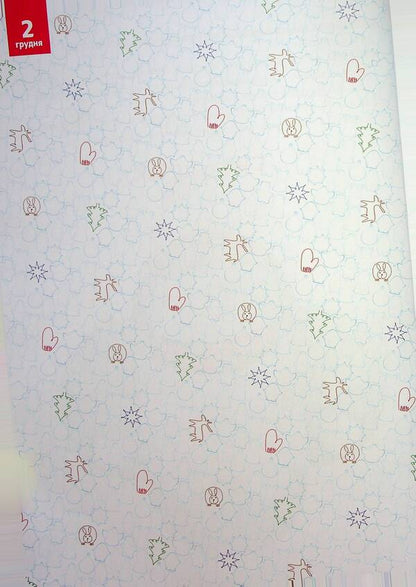 2
грудня